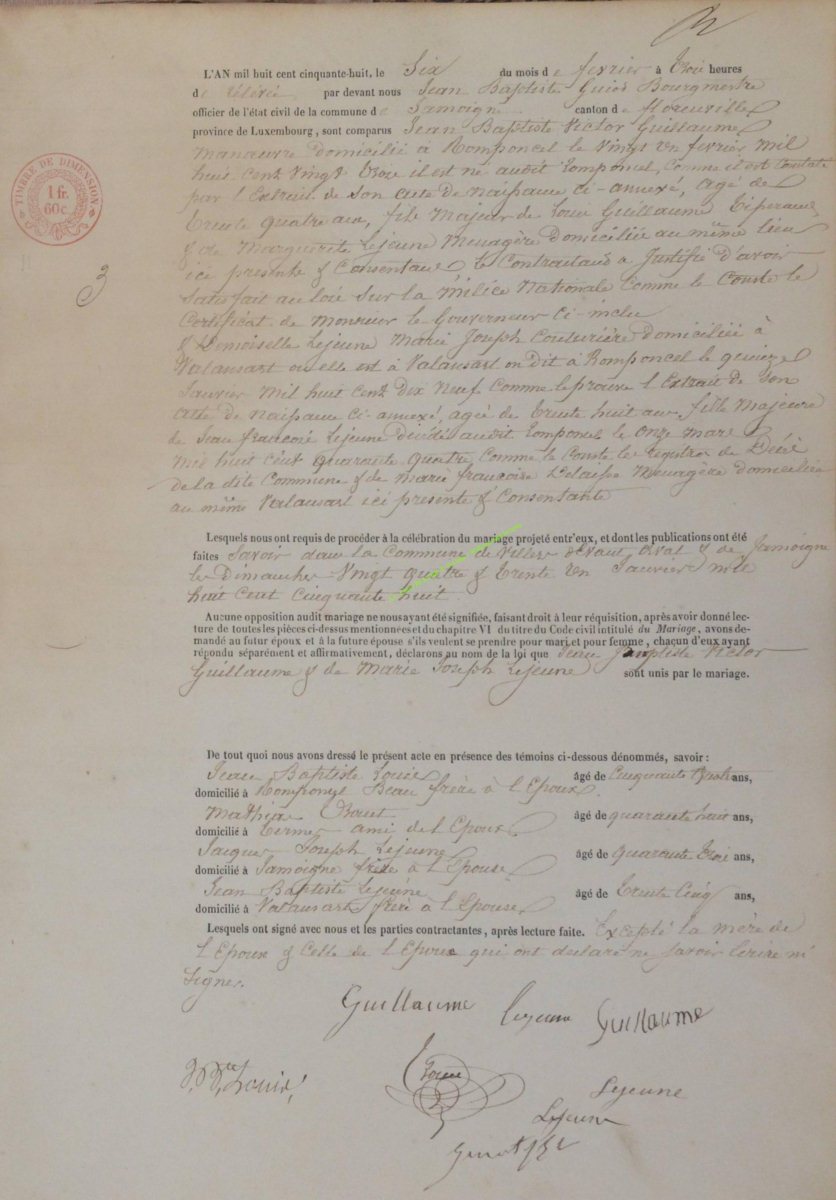 L'AN mil huit cent cinquante-huit, le Six du mois de fevrier à trois heures
de relevée par devant nous Jean Baptiste Bourgmestre
officier de l'état civil de la commune de Jamoigne canton de florenville
province de Luxembourg, sont comparus Jean Baptiste Victor Guillaume
Manœuvre Domicilié à Romponcel le Vingt un fevrier mil
huit Cent Vingt trois il est né audit Romponcel, Comme il est Constaté
par l'Extrait de Son acte de Naissance ci-annexé, agé de
trente quatre ans, fils Majeur de Louis Guillaume
& de Marguerite Lejeune Menagère Domiciliée au même lieu
ici presente & Consentante le Contractant a Justifié d'avoir
Satisfait au loix Sur la Milice Nationale Comme le Conste le
Certificat de Monsieur le Gouverneur Ci-inclu
& Demoiselle Lejeune Marie Joseph Couturière Domiciliéé à
Valansart ou elle est à Valansart on Dit à Romponcel le quinze
Janvier Mil huit Cent Dix Neuf Comme le prouve l'Extrait de Son
acte de Naissance Ci-annexé, agée de trente huit ans, fille Majeure
de Jean francois Lejeune Décédé audit Romponcel le Onze Mars
Mil huit Cent Quarante Quatre Comme le Conste le Registre de Décé
de la dite Commune & de Marie francoise Menagère domiciliée
au même Valansart ici presente & Consentante
Lesquels nous ont requis de procéder à la célébration du mariage projeté entr'eux, et dont les publications ont été
faites Savoir dans la Commune de Villers devant Orval & de Jamoigne
les Dimanches Vingt quatre & trente un Janvier mil
huit Cent Cinquante huit.
Aucune opposition audit mariage ne nous ayant été signifiée, faisant droit à leur réquisition, après avoir donné lec-
ture de toutes les pièces ci-dessus mentionnées et du chapitre VI du titre du Code civil intitulé du Mariage, avons de-
mandé au futur époux et à la future épouse s'ils veulent se prendre pour mari et pour femme, chaçun d'eux ayant
répondu séparément et affirmativement, déclarons au nom de la loi que Jean Baptiste Victor
Guillaume & de Marie Joseph Lejeune sont unis par le mariage.
De tout quoi nous avons dressé le présent acte en présence des témoins ci-dessous dénommés, savoir :
Jean Baptiste Louis âgé de Cinquante trois ans,
domicilié à Beau frère à l'Epoux.
Mathia âgé de quarante huit ans,
domicilié à termes ami de l'Epoux.
Jacques Joseph Lejeune âgé de Quarante trois ans,
domicilié à Jamoigne frère à l'Epouse
Jean Baptiste Lejeune âgé de trente Cinq ans,
domicilié à Valansart frère à l'Epouse
Lesquels ont signé avec nous et les parties contractantes, après lecture faite. Excepté la mère de
l'Epoux & Celle de l'Epouse qui ont declaré ne Savoir Ecrire ni
Signer.
Guillaume Lejeune Guillaume
Louis
Lejeune
Lejeune
TIMBRE DE DIMENSION
1 fr.
60 c.
3